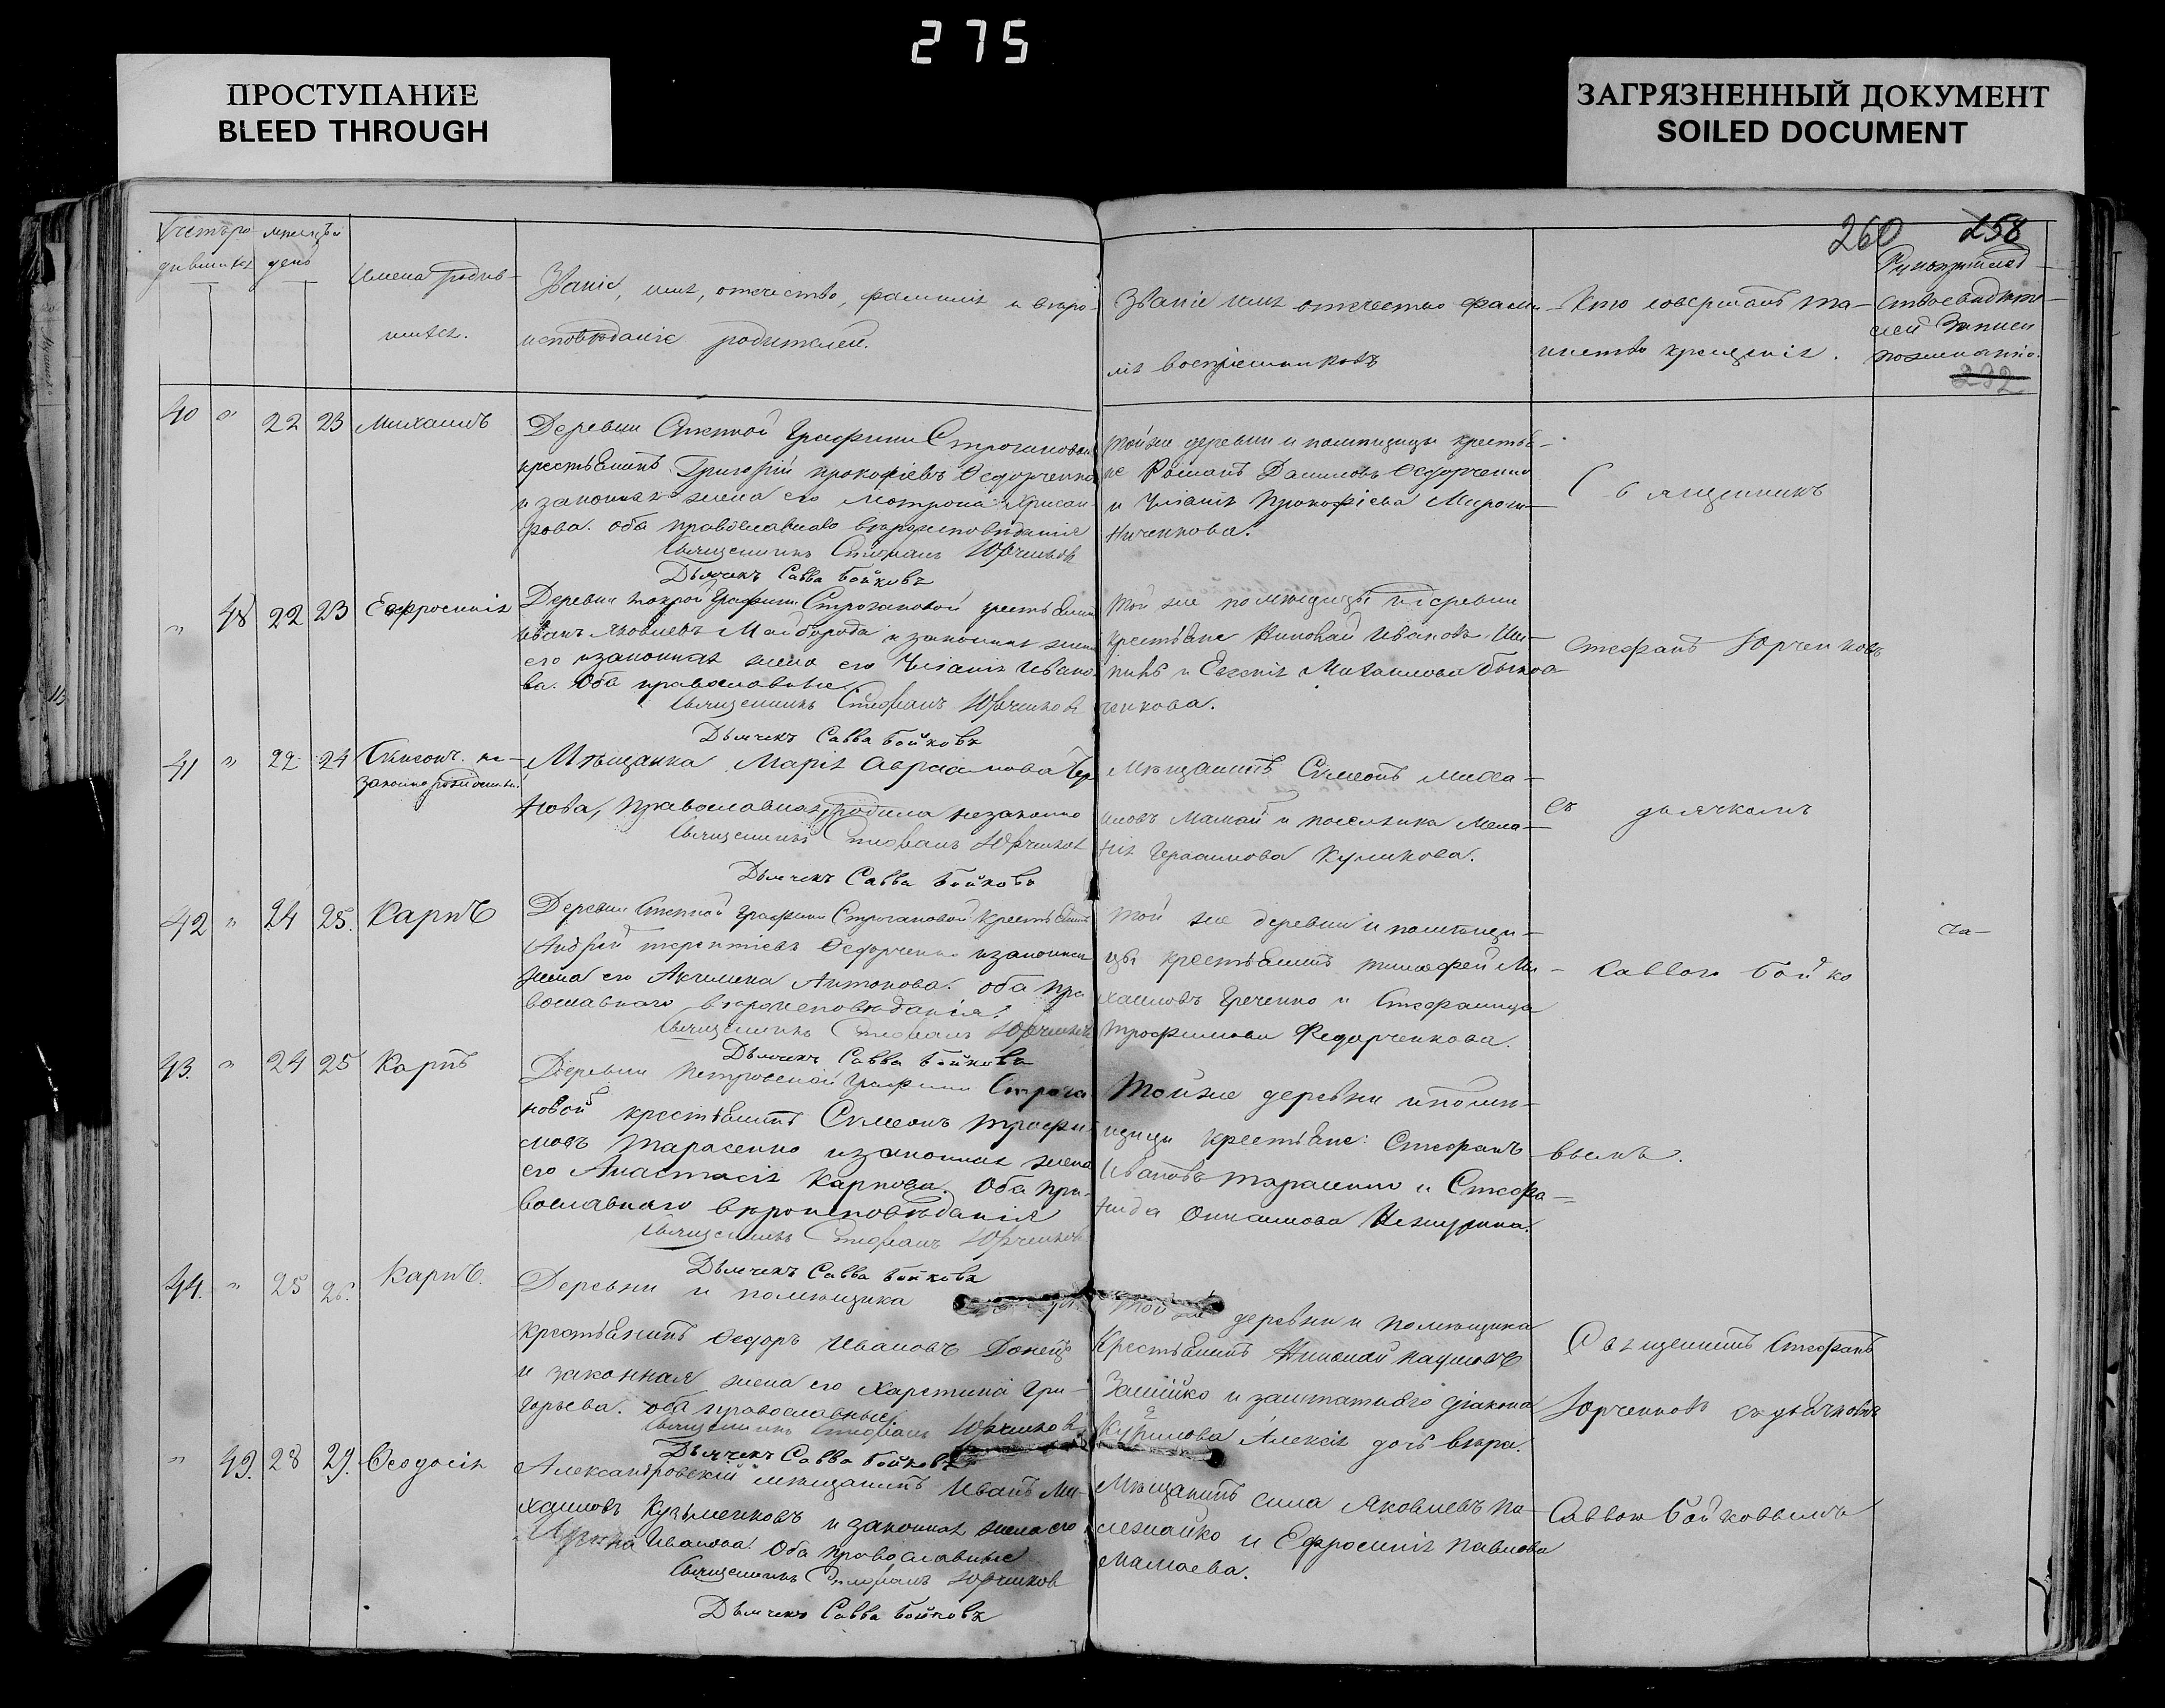 275
ПРОСТУПАНИЕ
BLEED THROUGH
ЗАГРЯЗНЕННЫЙ ДОКУМЕНТ
SOILED DOCUMENT
260 258
Имена родив-
шихся.
Званіе, имя, отечество, фамилія и вѣро-
исповѣданіе родителей.
Званіе имя отечество фами-
лія воспріемниковъ
Кто совершалъ та-
инство крещенія.
232
40 " 22 23 Михаилъ
Деревни Степной Графини Строгановой
крестьянинъ Григорій Прокофіевъ Ѳедорченко
и законная жена его Мотрона Хрисан-
фова. оба православнаго вѣроисповѣданія
Священникъ Стефанъ Юрченковъ
Дьячекъ Савва Бойковъ
Той же деревни и помѣщицы крестья-
не Романъ Даниловъ Ѳедорченко
и Уліанія Прокофіева Мирош-
ниченкова.
Священникъ
" 48 22 23 Ефросинія
Деревни Мокрой Графини Строгановой крестьянинъ
Иванъ Яковлевъ Майборода и законная жена
его изаконная жена его Уліанія Ивано-
ва. Оба православные
Священникъ Стефанъ Юрченковъ
Дьячекъ Савва Бойковъ
Той же помѣщицы и деревни
крестьяне Николай Ивановъ
и Евгенія Михаилова
ченкова.
Стефанъ Юрченковъ
41 " 22 24 Симеонъ не-
законнорожденный
Мѣщанка Марія Авраамова
нова, православная, родила незаконно
Священникъ Стефанъ Юрченковъ
Дьячекъ Савва Бойковъ
Мѣщанинъ Симеонъ Миха-
иловъ Мамай и поселянка Мела-
нія Герасимова Куликова.
съ дьячкомъ
42 " 24 25. Карпъ
Деревни Степной Графини Строгановой Крестьянинъ
Андрей Терентіевъ Ѳедорченко изаконная
жена его Акилина Антонова. Оба пра-
вославнаго вѣроисповѣданія.
Священникъ Стефанъ Юрченковъ
Дьячекъ Савва Бойковъ
Той же деревни и помѣщи-
цы крестьянинъ Тимофей Ми-
хаиловъ Греченко и Стефанида
Трофимова Федорченкова.
Саввою Бойко
43. " 24 25 Карпъ
Деревни Петровской Графини Строга-
новой крестьянинъ Симеонъ Трофи-
мовъ Тарасенко изаконная жена
его Анастасія Карпова. Оба пра-
вославнаго вѣроисповѣданія
Священникъ Стефанъ Юрченковъ
Дьячекъ Савва Бойковъ
Тойже деревни ипомѣ-
щицы крестьяне: Стефанъ
Ивановъ Тарасенко и Стефа-
нида
вымъ.
44. " 25 26. Карпъ.
Деревни и помѣщика
крестьянинъ Ѳедоръ Ивановъ Донецъ
и законная жена его Харетина Гри-
горьева. оба православные.
Священникъ Стефанъ Юрченковъ
Дьячекъ Савва Бойковъ
Той же деревни и помѣщика
Крестьянинъ Николай Наумовъ
и заштатнаго діакона
Курилова Алексія дочь Вѣра.
Священникъ Стефанъ
Юрченковъ съ дьячкомъ
" 49. 28 29. Ѳеодосія
Александровскій мѣщанинъ Иванъ Ми-
хаиловъ Кузьменковъ и законная жена его
Ирина Иванова. Оба православные
Священникъ Стефанъ Юрченковъ
Дьячекъ Савва Бойковъ
Мѣщанинъ Сила Яковлевъ Па-
ламайко и Ефросинія Павлова
Мамаева.
Саввою Бойковымъ